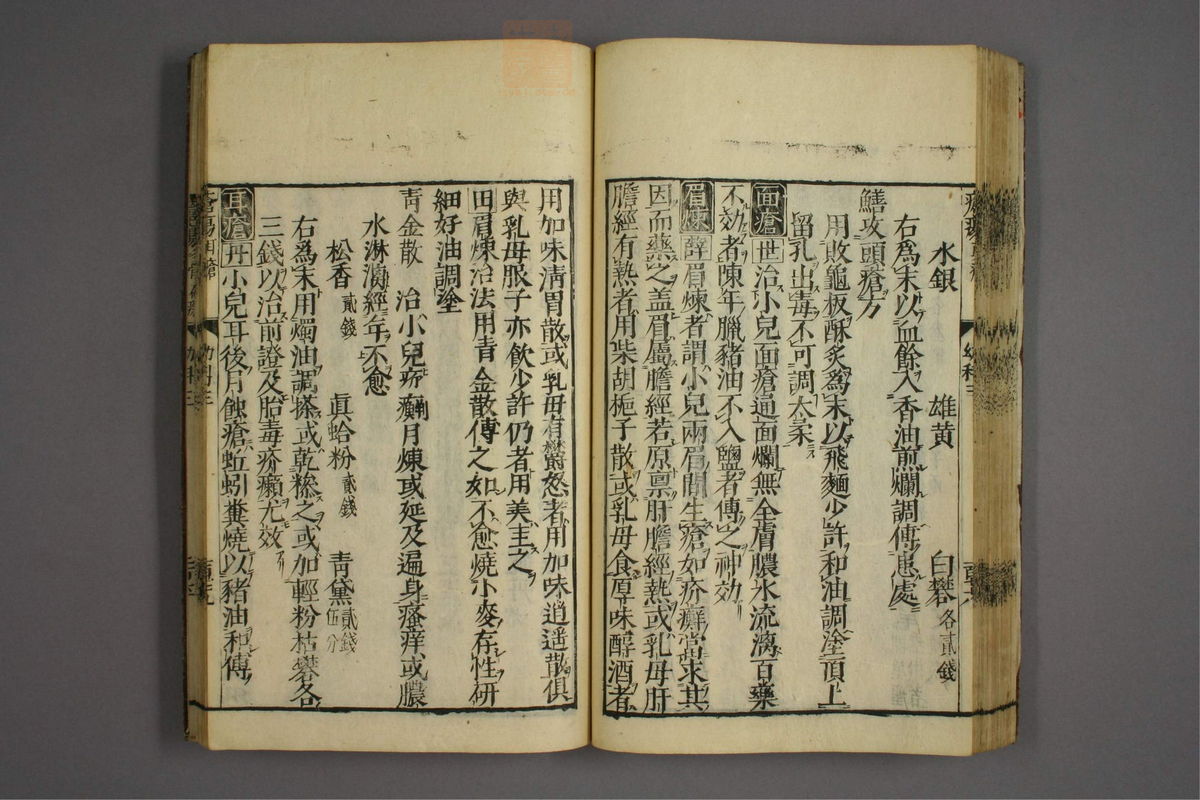 水銀 雄黄 白礬各貳錢
右爲末以血餘入香油煎爛調傅患處
鱔攻頭瘡方
用敗龜板酥炙爲末以飛麵少許和油調塗頂上
留乳出毒不可調太末
面瘡 世治小兒面瘡通面爛無全膚膿水流漓百藥
不効者陳年臘豬油不入鹽者傅之神効
眉煉 薛眉煉者謂小兒兩眉間生瘡如疥癬當求其
因而藥之盖眉屬膽經若原禀肝膽經熱或乳母肝
膽經有熱者用柴胡梔子散或乳母食厚味醇酒者
用加味淸胃散或乳母有欝怒者用加味逍遥散俱
與乳母服子亦飮少許仍者用美主之
田眉煉治法用青金散傅之如不愈燒小麥存性研
細好油調塗
青金散 治小兒疥癬月煉或延及遍身瘙痒或膿
水淋漓經年不愈
松香貳錢 眞蛤粉貳錢 靑黛貳錢伍分
右爲末用燭油調搽或乾糝之或加輕粉枯礬各
三錢以治前證及胎毒疥癩尤效
耳瘡 丹小兒耳後月蝕瘡蚯蚓糞燒以豬油和傅